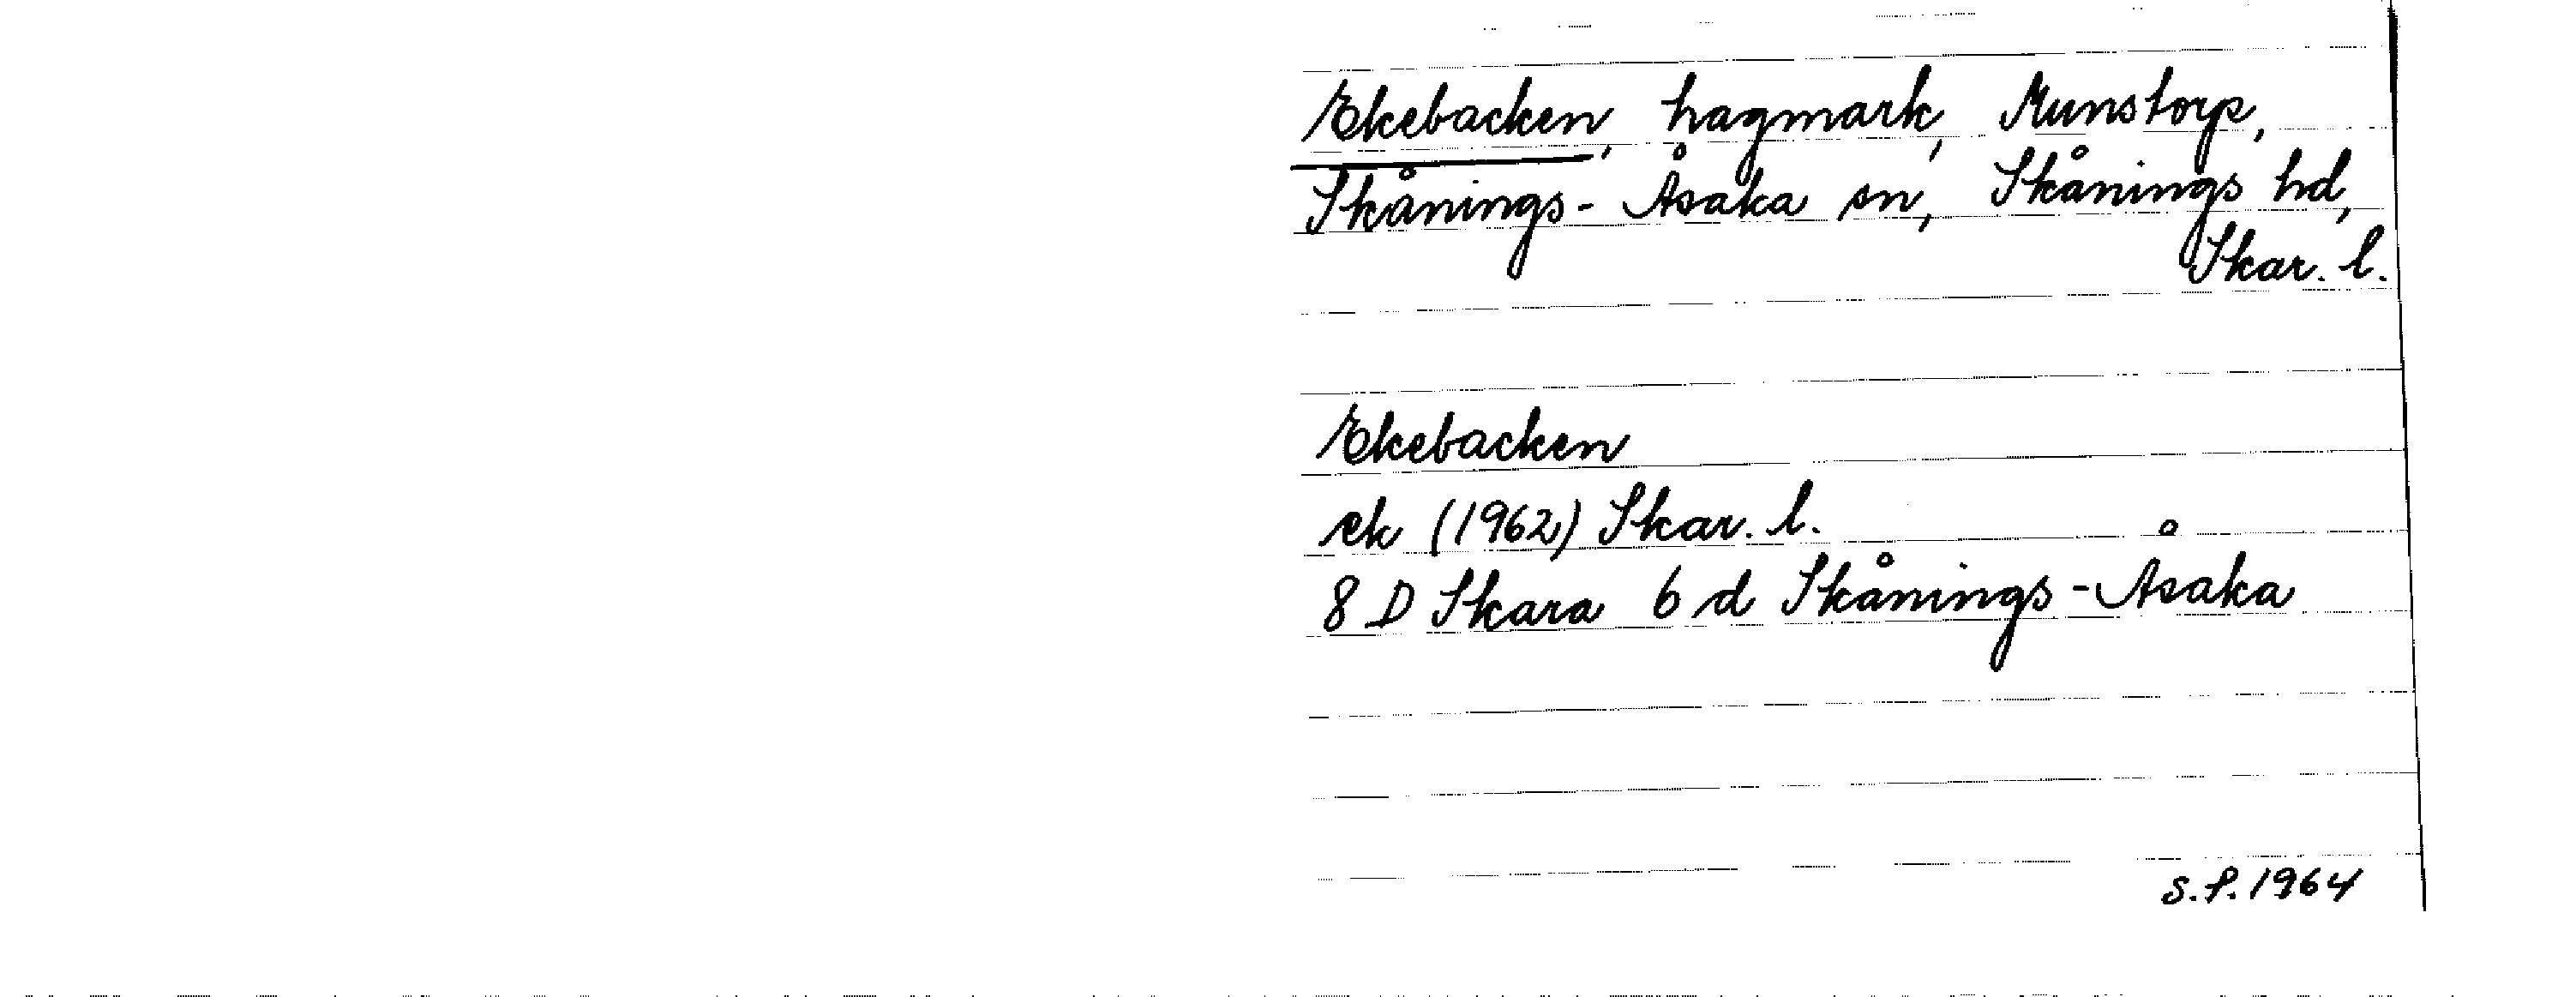 Ekebacken, hagmark, Munstorp,
Skånings-Åsaka sn, Skånings hd,
Skar. l.
Ekebacken
ek (1962) Skar. l.
8 D Skara 6 d Skånings-Åsaka
S.P. 1964